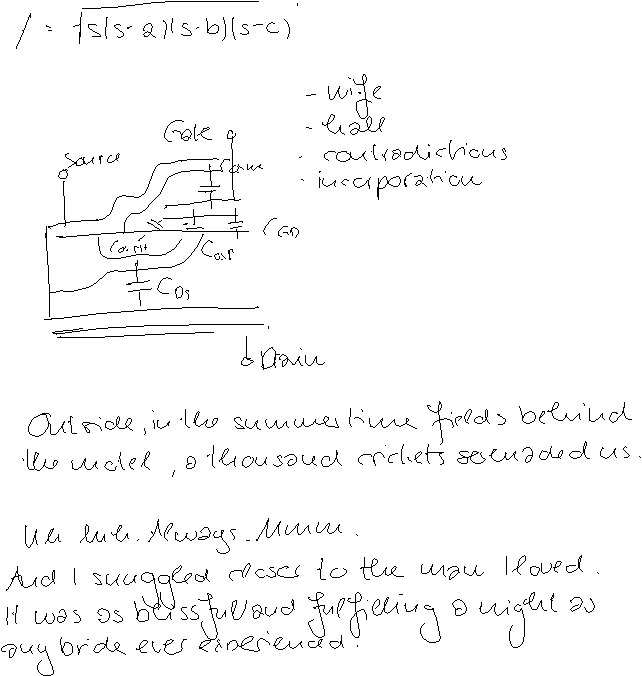 / = √s(s-a)(s-b)(s-c)
- wife
- hall
- contradictions
- incorporation
Gate
Source
C GD
C DS
Drain
Outside, in the summertime fields behind
the motel, a thousand crickets serenaded us.
Uh huh. Always. Mmmm.
And I snuggled closer to the man I loved.
It was as blissful and fulfilling a night as
any bride ever experienced.